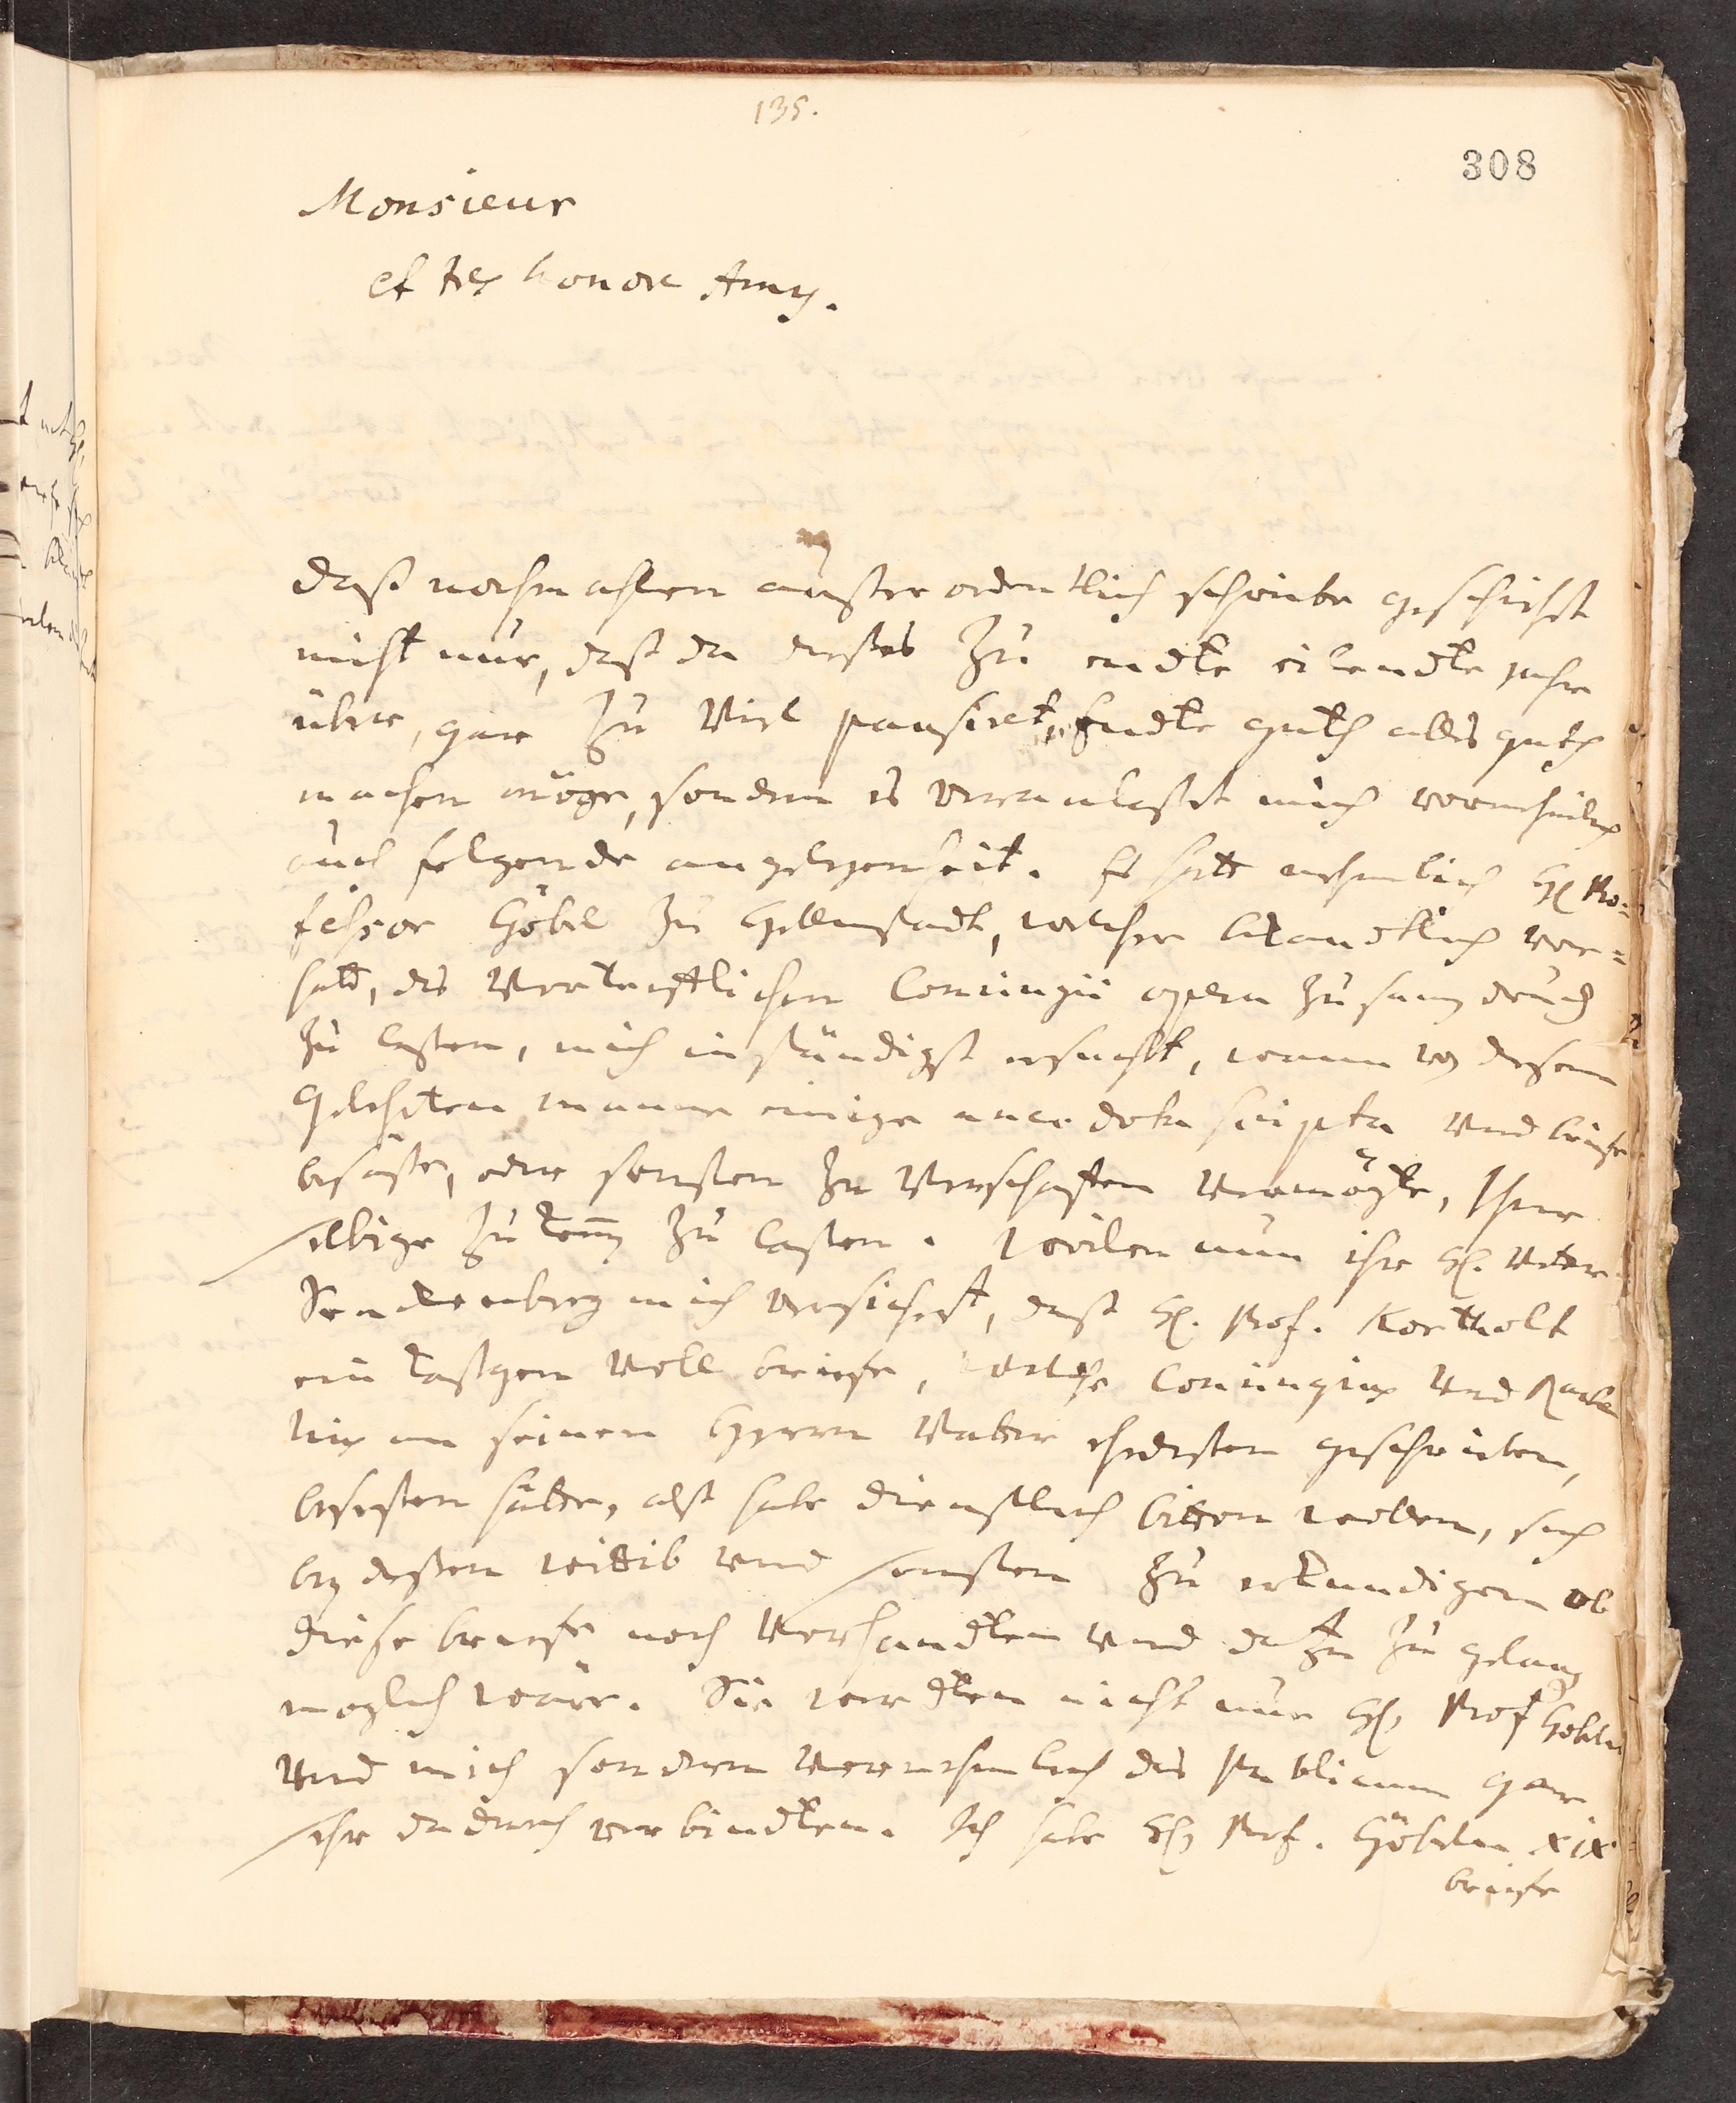 135.
308
Monsieur
et tres honore Amy.
Daß nochmahlen ausserordentlich schreibe geschieht
nicht nur, daß da dießes zu endte eilendte Jahr
über, gar zu viel pausiret, Endte guth alles guth
machen möge, sondern es veranlaßet mich vornehmlich
auch folgende angelegenheit. Es hatt nehmlich H. Pro-
fessor Göbel zu Helmstadt, welcher bekandtlich vor-
hatt, des Vortrefflichen Conringii opera zusam druck
zu laßen, mich inständigst ersucht, wann von diesem
Gelehrten manne einige anecdota scripta und briefe
besäße, oder sonsten zu verschaffen vermögte, Ihme
selbige zukom zu laßen. Weilen nun ihr H. Vetter
Senckenberg mich versichert, daß H. Prof. Kortholt
ein Kastgen voll briefe, welche Conringius und Rache
lius an seinen Herrn Vatter ehedessen geschrieben,
beseßen hätte, alß habe dienstlich bitten wollen, sich
bey deßen wittib und sonsten zu erkundigen ob
diese briefe noch verhandten und darzu zu gelang
möglich wäre. Sie werdten nicht nur H. Prof Gobeln
und mich sondern vornehmlich das Publicum gar
sehr dadurch verbindten. Ich habe H. Prof. Göbeln XIX
briefe